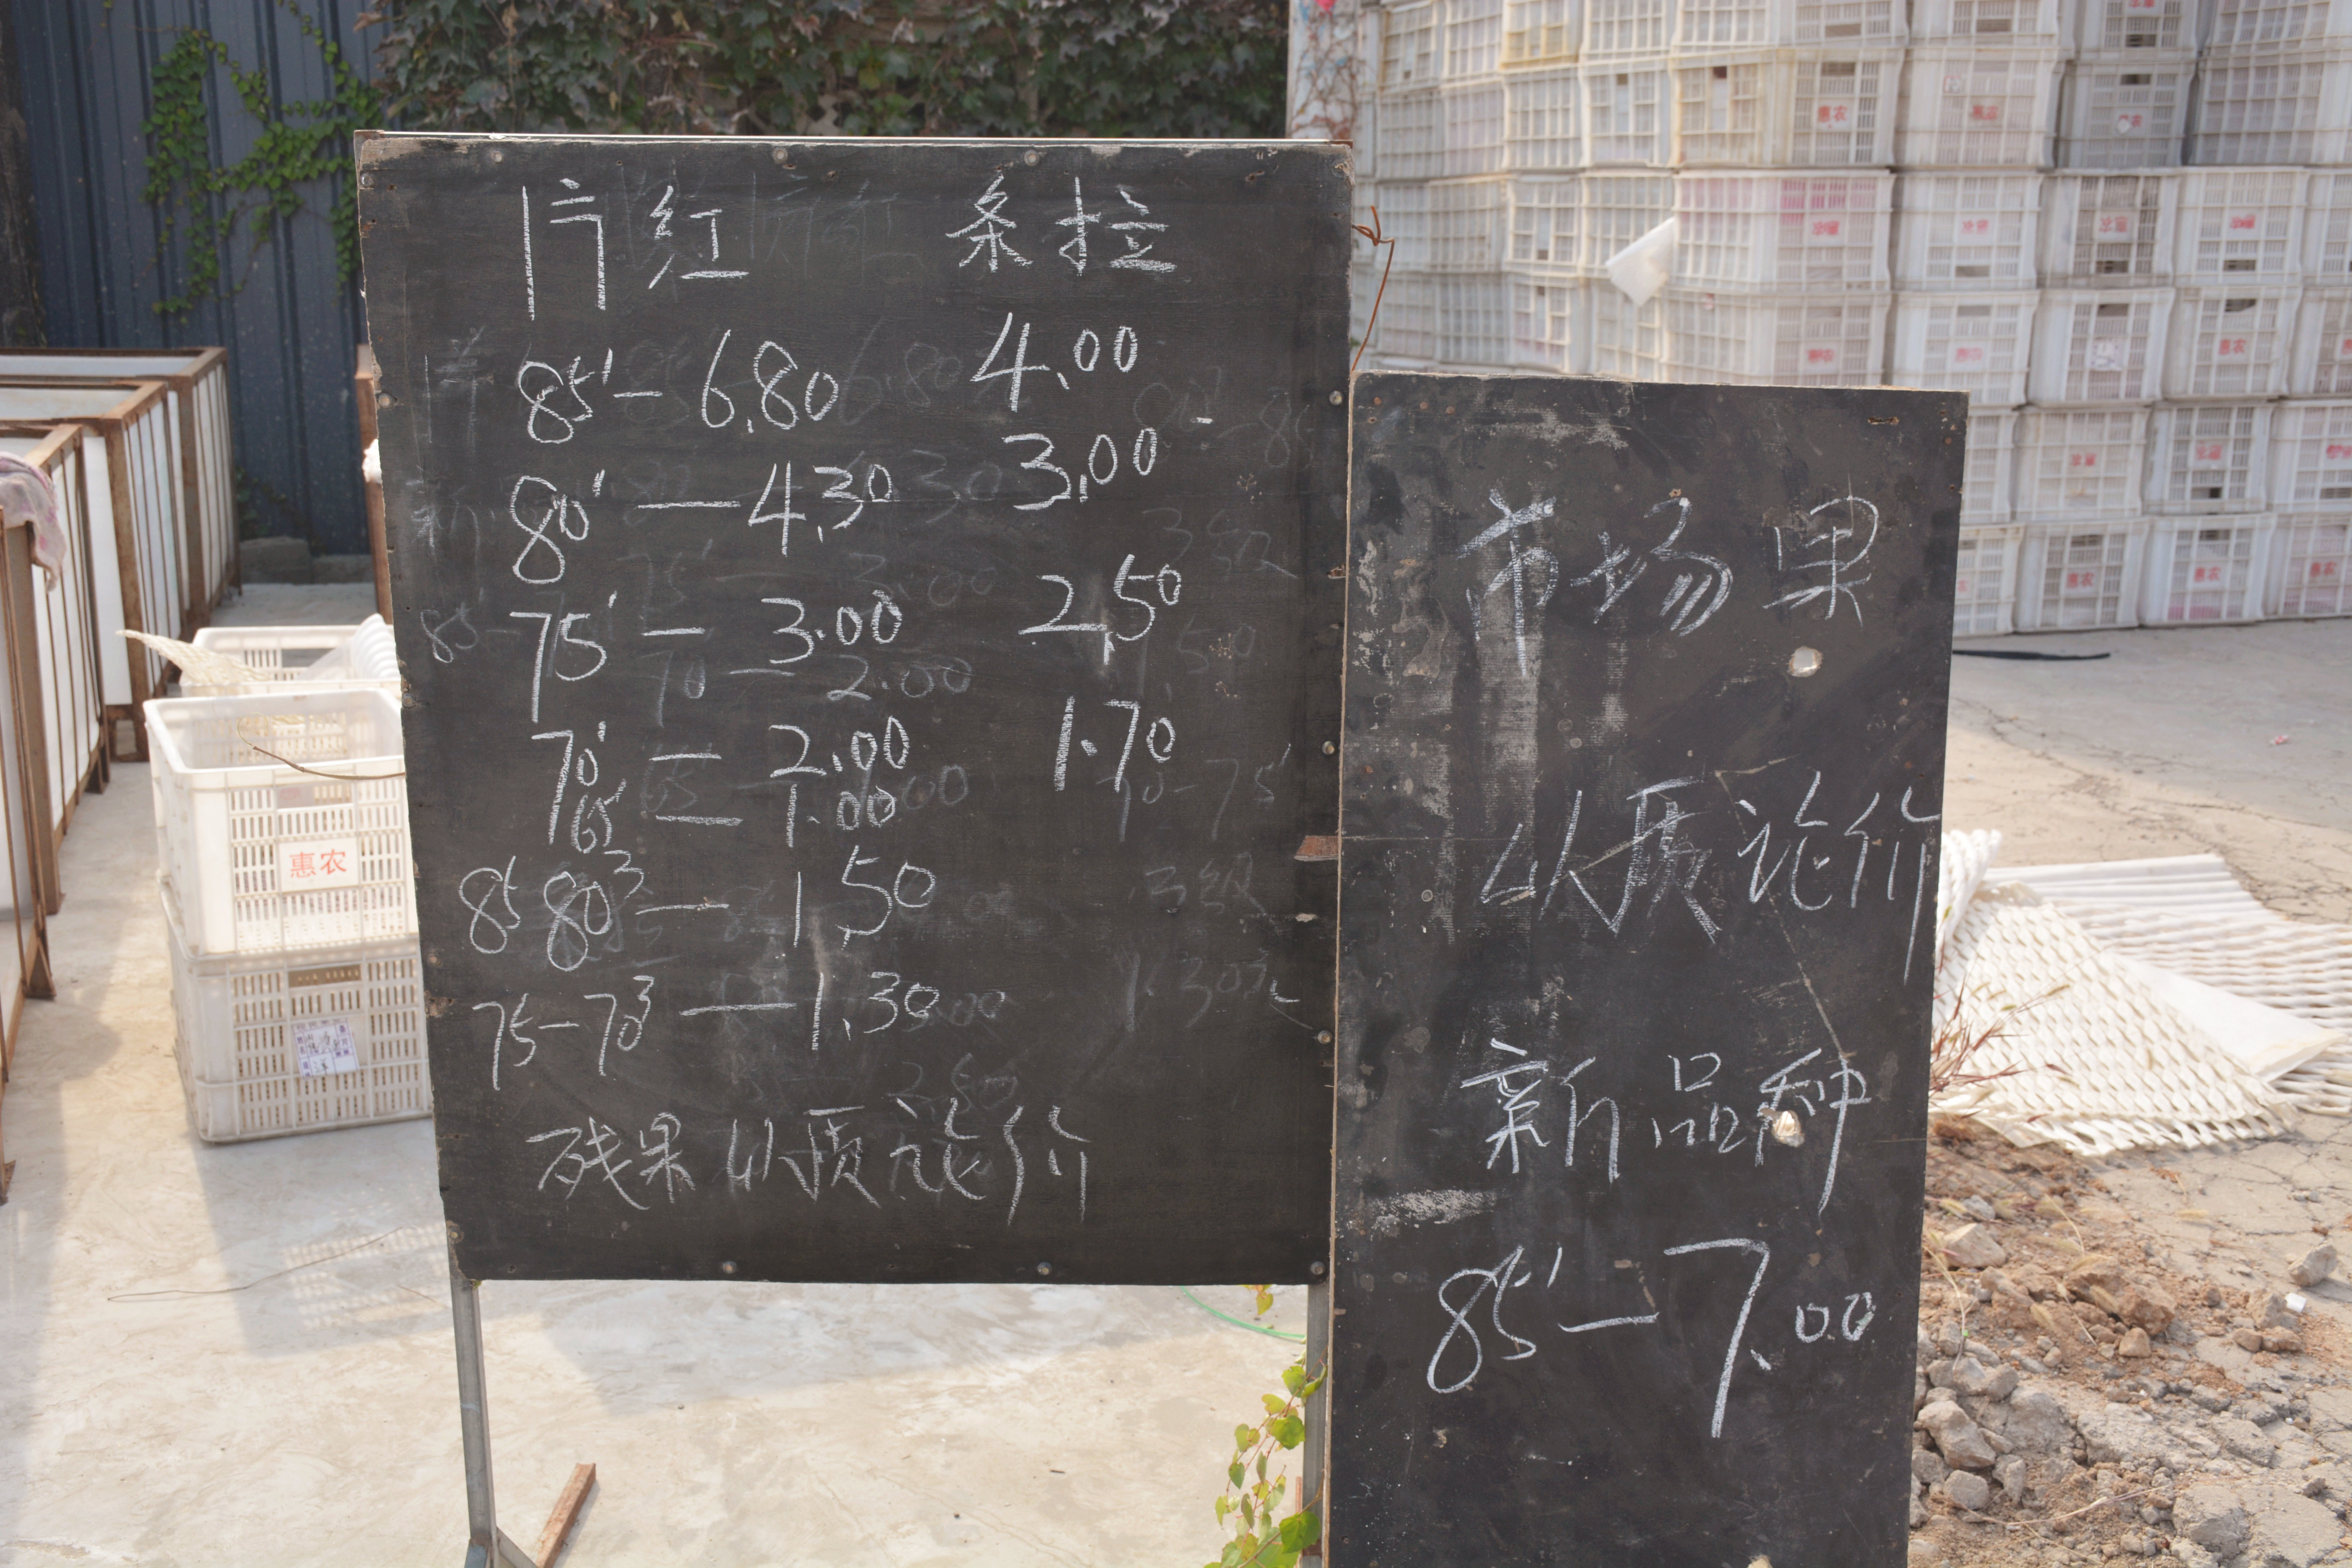 片红 条拉
85' — 6.80 4.00
80' — 4.30 3.00
75' — 3.00 2.50
70' — 2.00 1.70
65' — 1.00
85 80³ — 1.50
75-70³ — 1.30
残果以质论价
市场果
以质论价
新品种
85' — 7.00
惠农